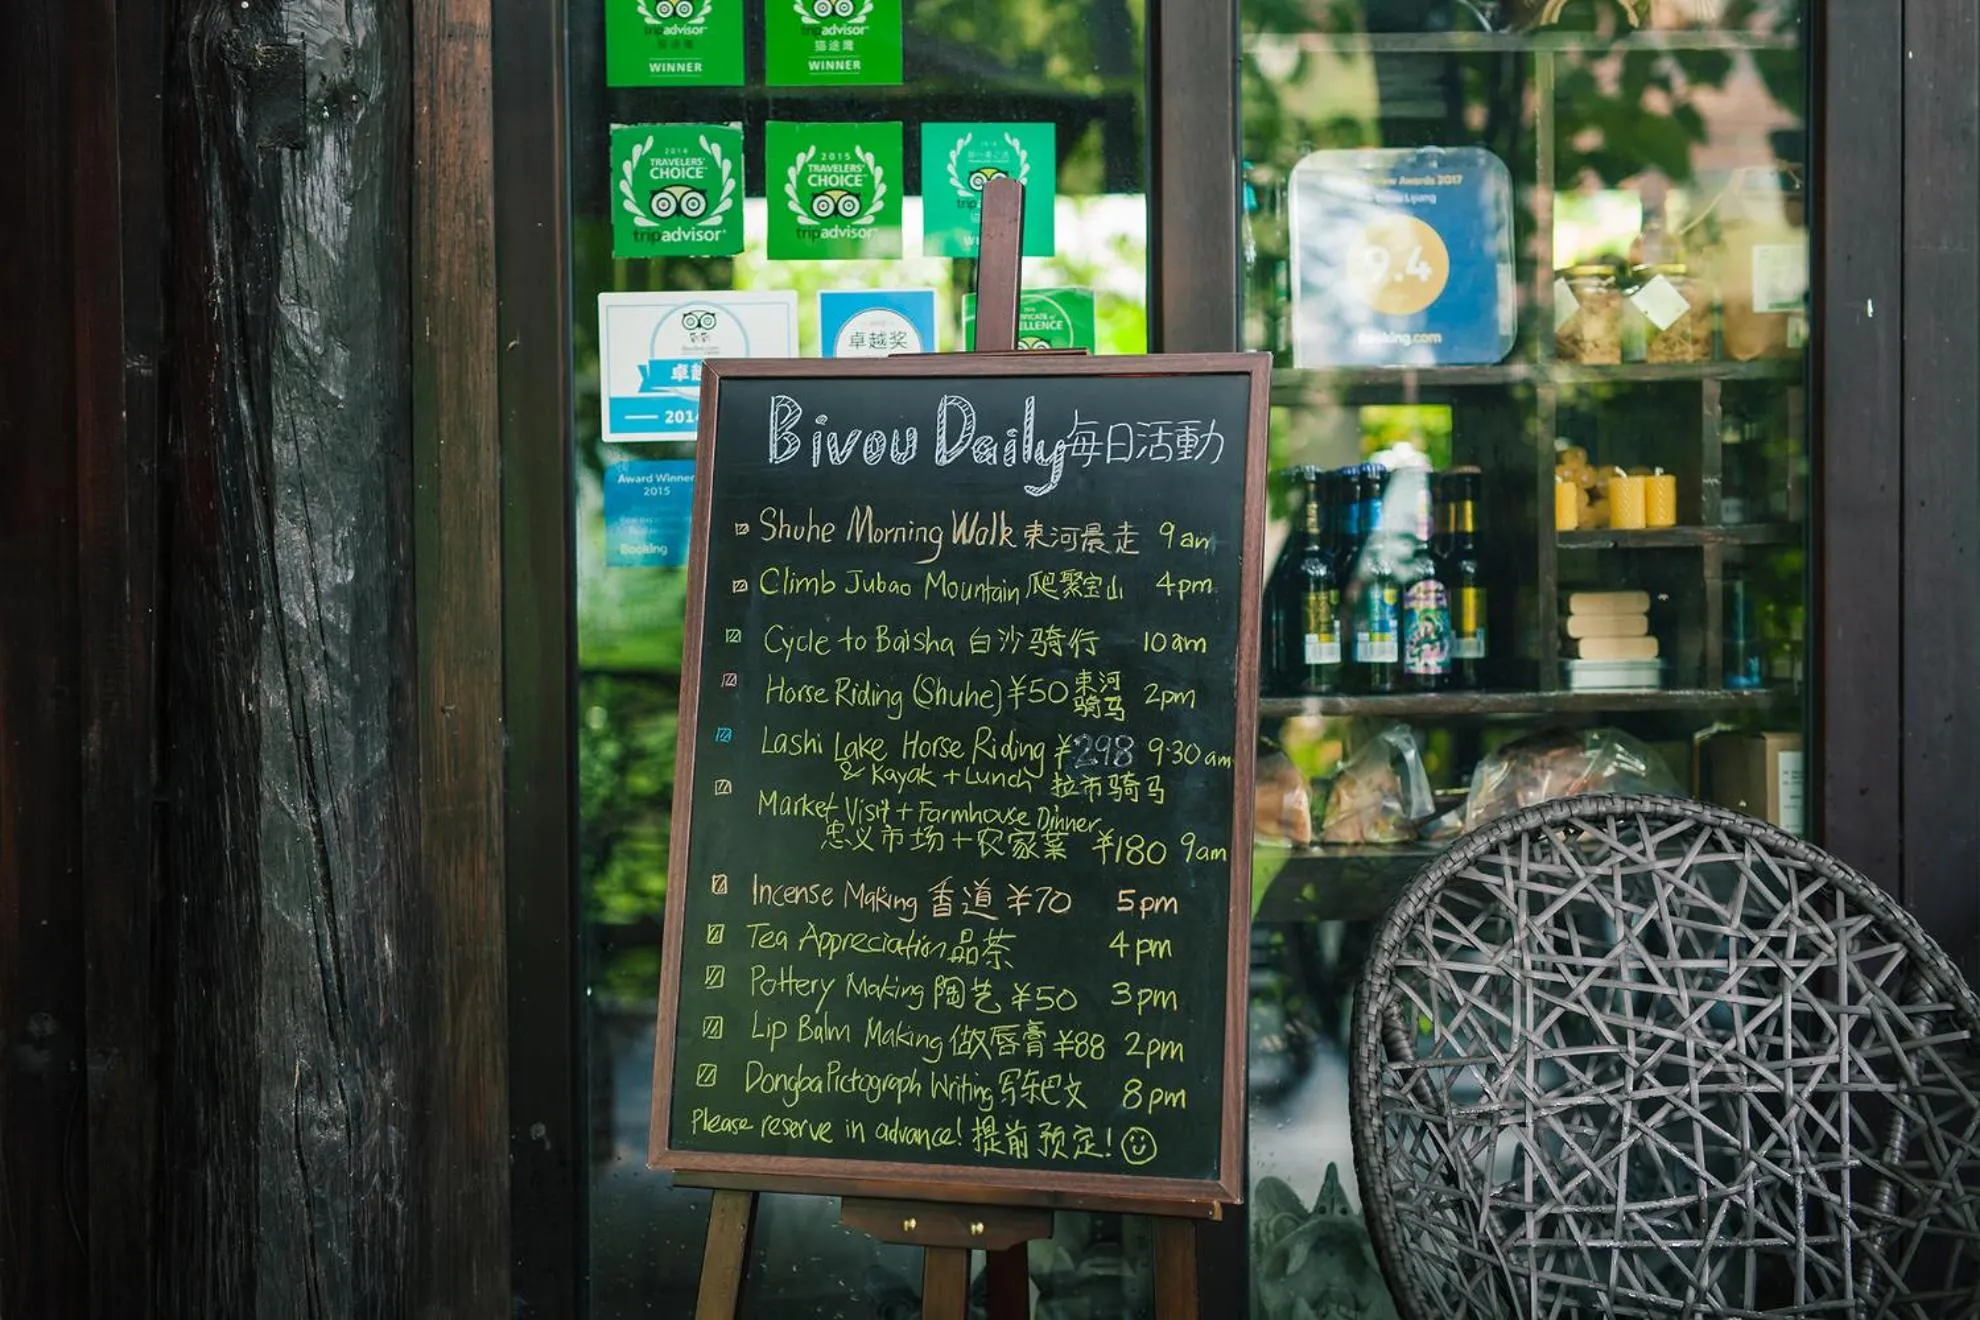 tripadvisor
WINNER
tripadvisor
猫途鹰
WINNER
2014
TRAVELERS'
CHOICE
tripadvisor
2015
TRAVELERS'
CHOICE
tripadvisor
Awards 2017
Lijiang
9.4
Booking.com
卓越奖
2014
Award Winner
2015
Booking
Bivou Daily 每日活動
Shuhe Morning Walk 束河晨走 9am
Climb Jubao Mountain 爬聚宝山 4pm
Cycle to Baisha 白沙骑行 10am
Horse Riding (Shuhe) ¥50 束河骑马 2pm
Lashi Lake Horse Riding ¥298 9:30am
& Kayak + Lunch 拉市骑马
Market Visit + Farmhouse Dinner
忠义市场+农家菜 ¥180 9am
Incense Making 香道 ¥70 5pm
Tea Appreciation 品茶 4pm
Pottery Making 陶艺 ¥50 3pm
Lip Balm Making 做唇膏 ¥88 2pm
Dongba Pictograph Writing 写东巴文 8pm
Please reserve in advance! 提前预定!